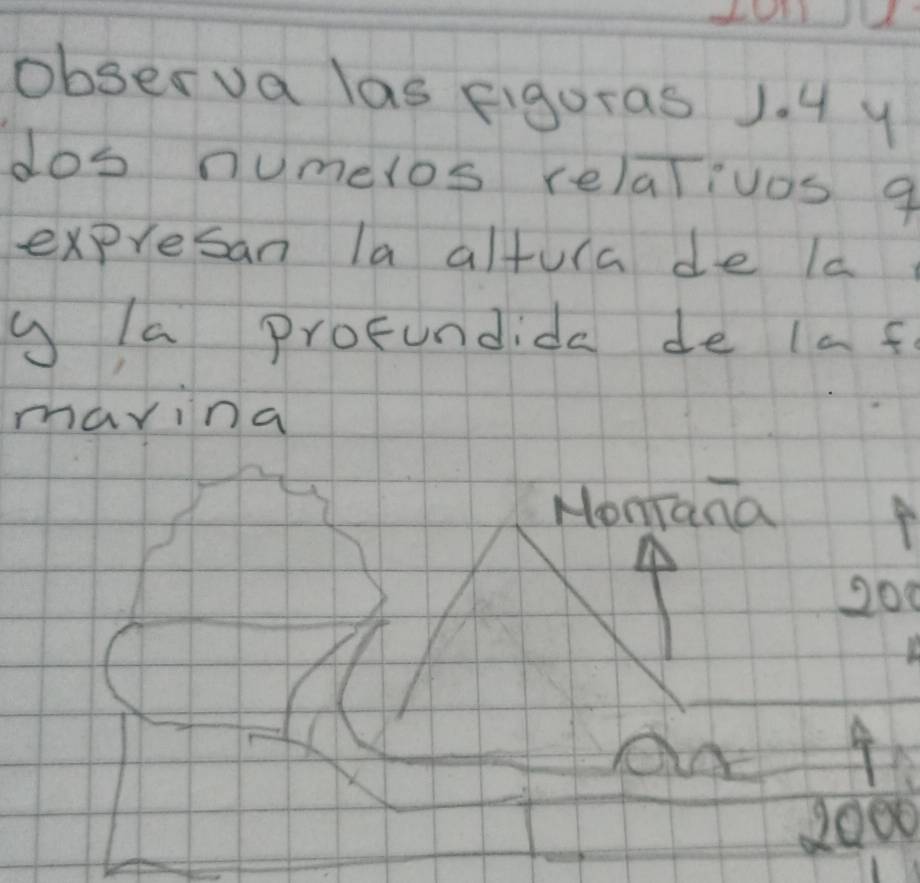 Observa las figuras 1.4 y
dos numeros relativos q
expresan la altura de la
y la profundida de la f
marina
Montaña
200
2000